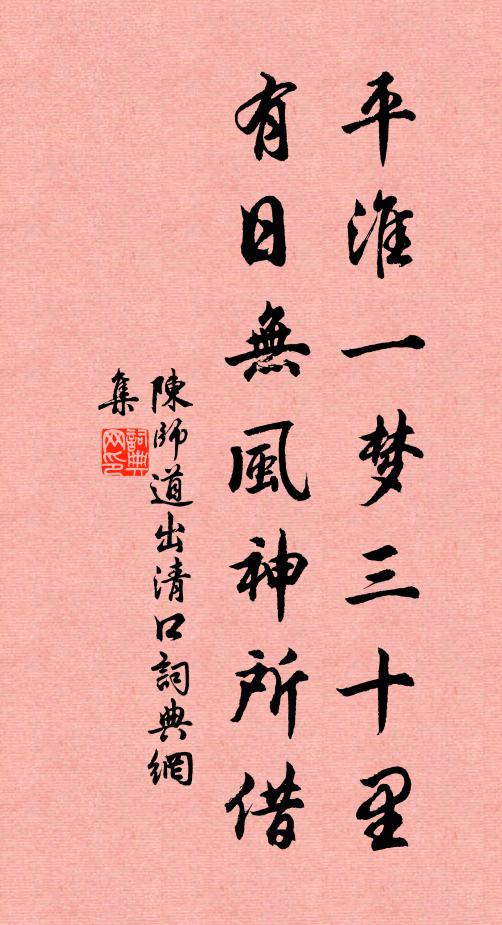 平淮一梦三十里
有日無風神所借
陳師道出清口詞典網
集
詞典
网印